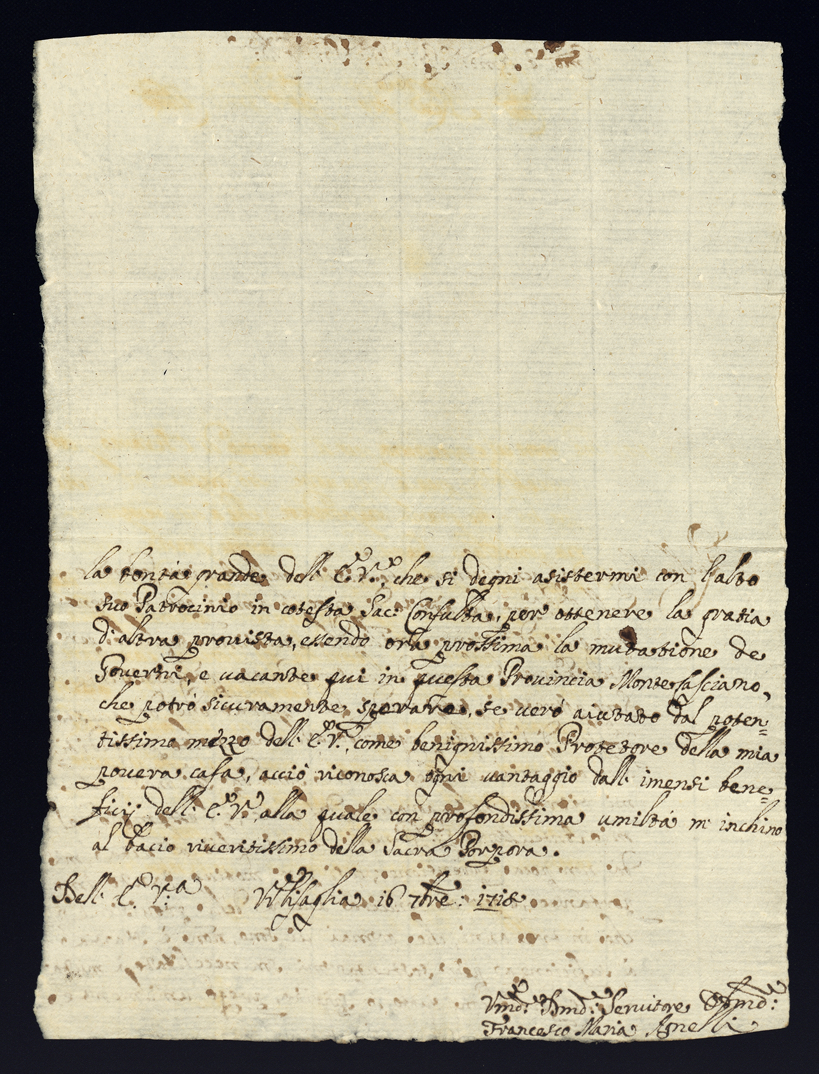 la bontà grande dell' E. V., che si degni asistermi con l'alto
suo Patrocinio in cotesta Sac: Consulta, per ottenere la gratia
d'altra provista, essendo ora prossima la mutatione de
Governi, e vacante qui in questa Provincia Montefasciano,
che potrò sicuramente sperare, se verò aiutato dal poten=
tissimo mezzo dell' E. V., come benignissimo Protetore della mia
povera casa, acciò riconosca ogni vantaggio dall' imensi bene=
ficij dell' E. V. alla quale con profondissima umiltà m' inchino
al bacio riveritissimo della Sacra Porpora.
Dell' E. V.a 16 7bre: 1718
Vmo: Servitore
Francesco Maria Agnelli